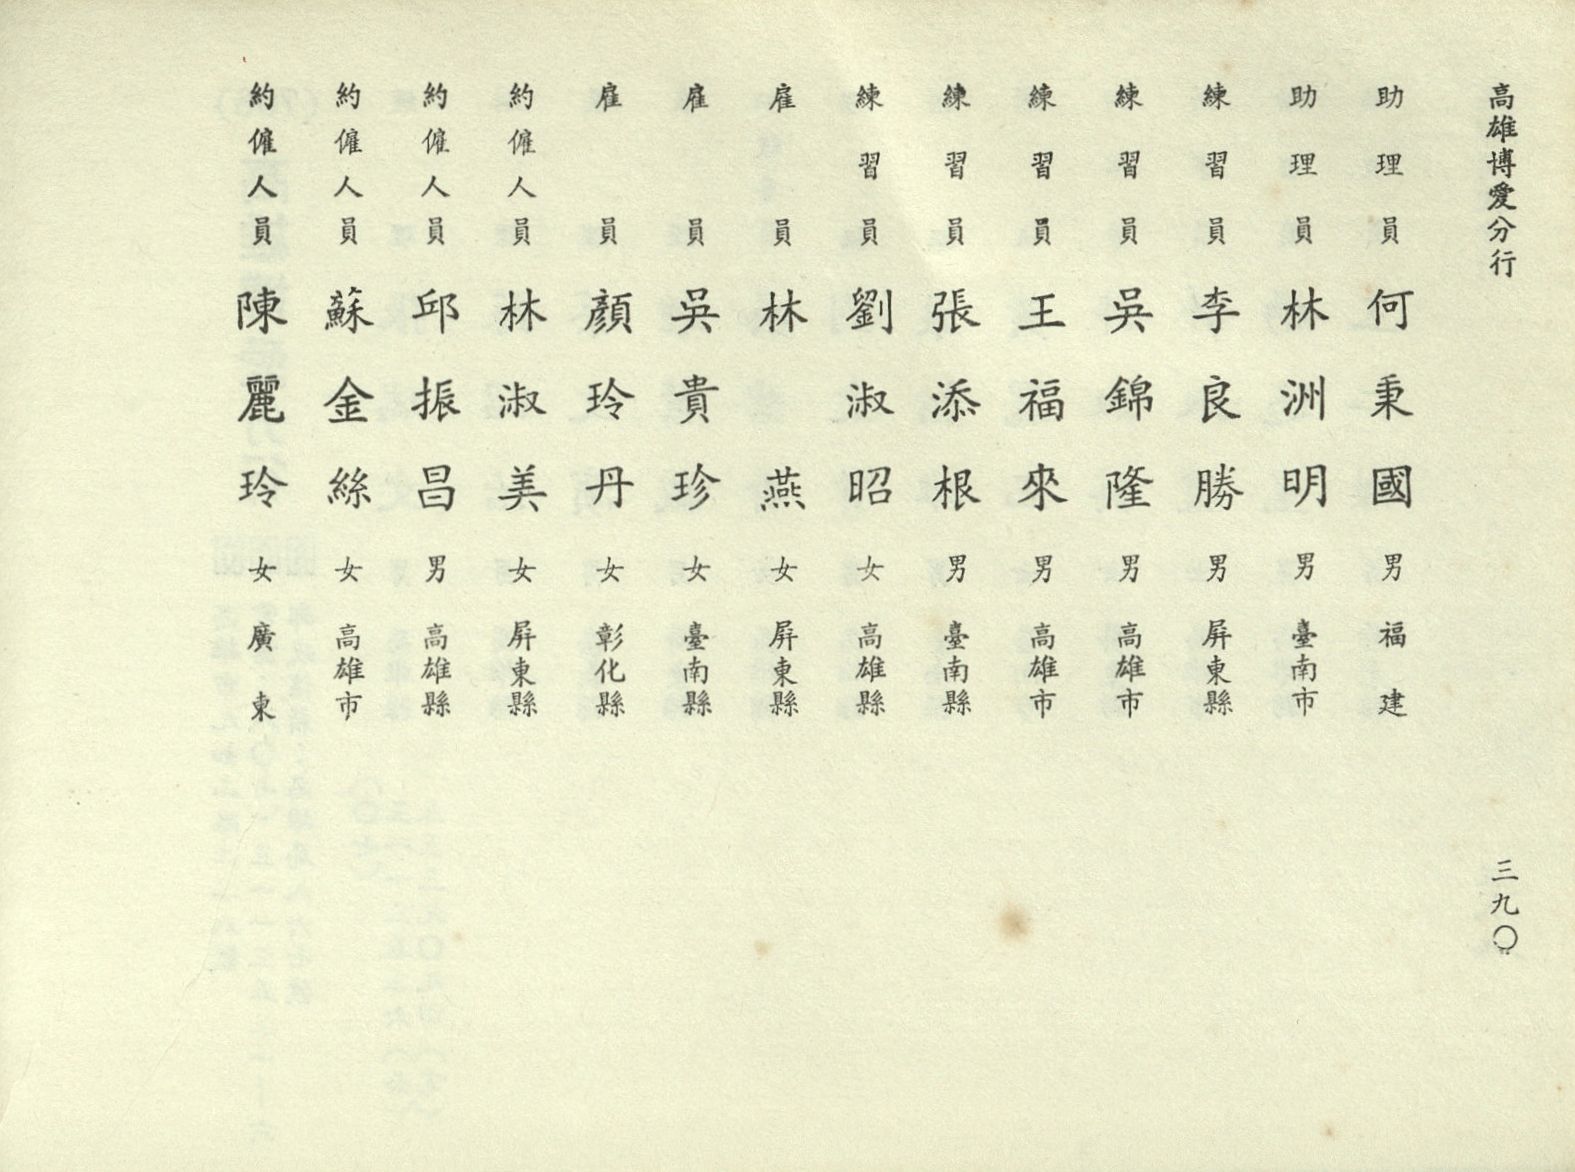 高雄博愛分行
三九〇
助理員 何秉國 男 福建
助理員 林洲明 男 臺南市
練習員 李良勝 男 屏東縣
練習員 吳錦隆 男 高雄市
練習員 王福來 男 高雄市
練習員 張添根 男 臺南縣
練習員 劉淑昭 女 高雄縣
雇員 林燕 女 屏東縣
雇員 吳貴珍 女 臺南縣
雇員 顏玲丹 女 彰化縣
約僱人員 林淑美 女 屏東縣
約僱人員 邱振昌 男 高雄縣
約僱人員 蘇金絲 女 高雄市
約僱人員 陳麗玲 女 廣東